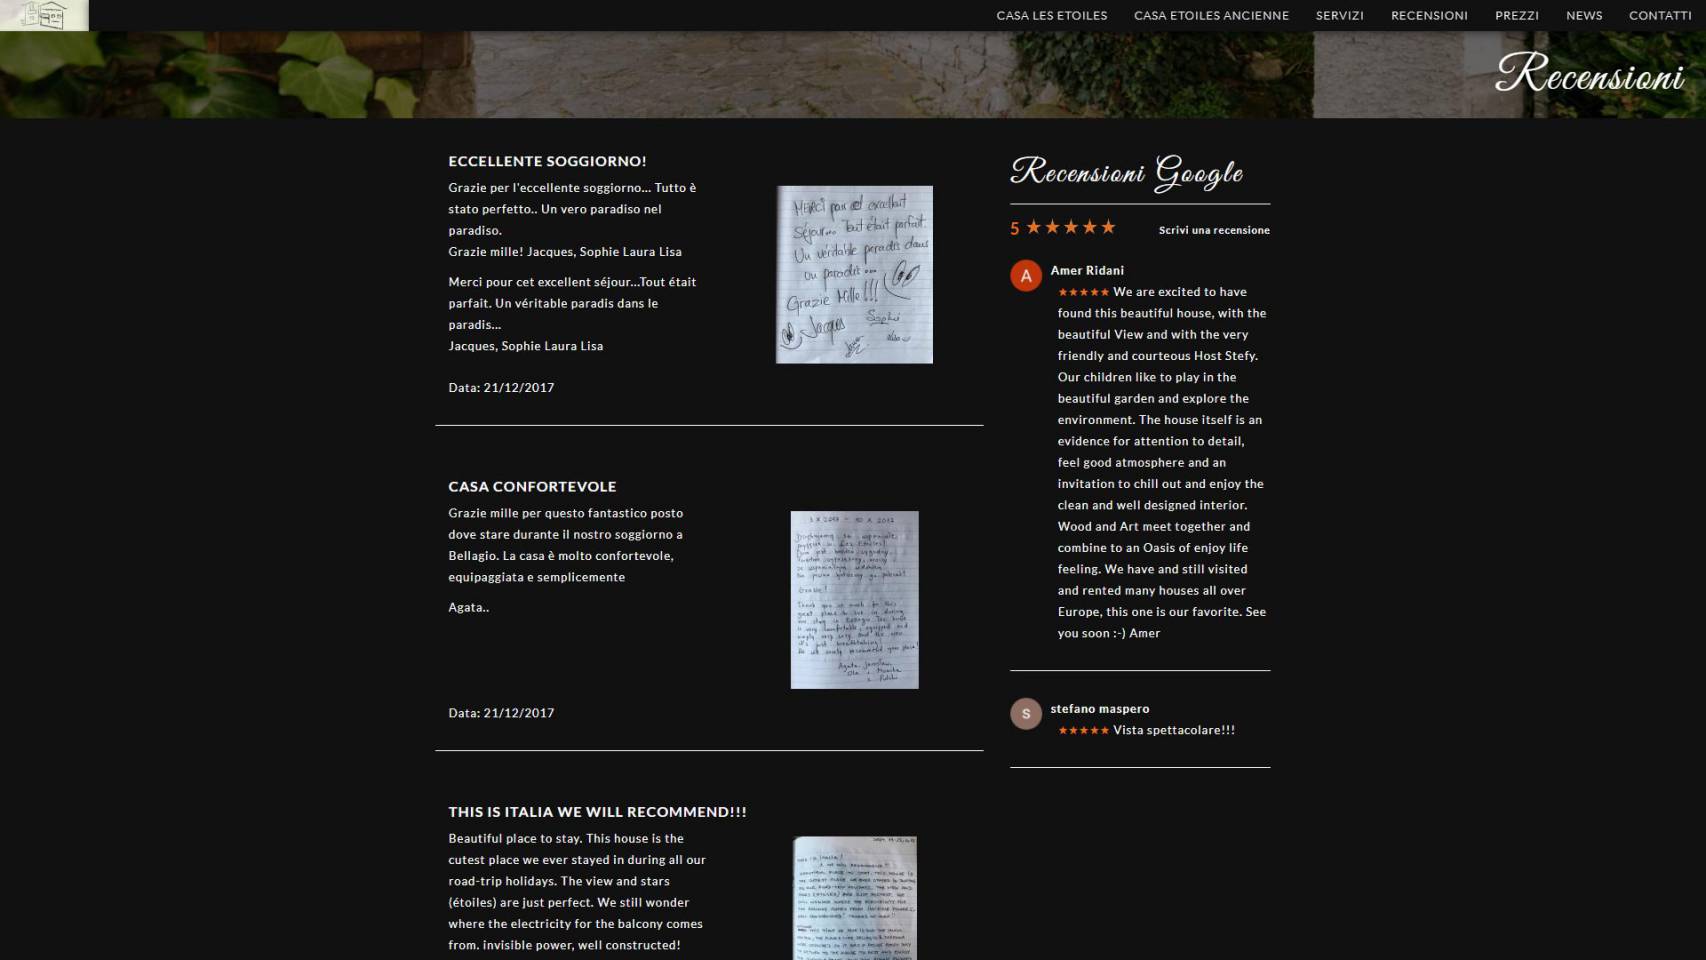 CASA LES ETOILES CASA ETOILES ANCIENNE SERVIZI RECENSIONI PREZZI NEWS CONTATTI
Recensioni
ECCELLENTE SOGGIORNO!
Grazie per l'eccellente soggiorno... Tutto è
stato perfetto.. Un vero paradiso nel
paradiso.
Grazie mille! Jacques, Sophie Laura Lisa
Merci pour cet excellent séjour...Tout était
parfait. Un véritable paradis dans le
paradis...
Jacques, Sophie Laura Lisa
Data: 21/12/2017
MERCI pour cet excellent
Séjour... Tout était parfait.
Un véritable paradis dans
ou paradis...
Grazie Mille!!!
Jacques
Sophie
CASA CONFORTEVOLE
Grazie mille per questo fantastico posto
dove stare durante il nostro soggiorno a
Bellagio. La casa è molto confortevole,
equipaggiata e semplicemente
Agata..
Data: 21/12/2017
THIS IS ITALIA WE WILL RECOMMEND!!!
Beautiful place to stay. This house is the
cutest place we ever stayed in during all our
road-trip holidays. The view and stars
(étoiles) are just perfect. We still wonder
where the electricity for the balcony comes
from. invisible power, well constructed!
Recensioni Google
5 ★★★★★ Scrivi una recensione
A
Amer Ridani
★★★★★ We are excited to have
found this beautiful house, with the
beautiful View and with the very
friendly and courteous Host Stefy.
Our children like to play in the
beautiful garden and explore the
environment. The house itself is an
evidence for attention to detail,
feel good atmosphere and an
invitation to chill out and enjoy the
clean and well designed interior.
Wood and Art meet together and
combine to an Oasis of enjoy life
feeling. We have and still visited
and rented many houses all over
Europe, this one is our favorite. See
you soon :-) Amer
S
stefano maspero
★★★★★ Vista spettacolare!!!